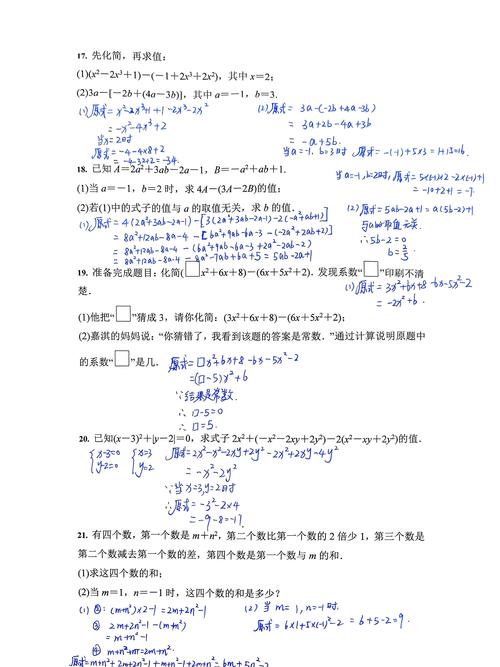 17. 先化简，再求值：
(1)(x²−2x³+1)−(−1+2x³+2x²)，其中 x=2；
(2)3a−[−2b+(4a−3b)]，其中 a=−1，b=3.
(1) 原式 = x²-2x³+1+1-2x³-2x²
= -x²-4x³+2
当x=2时
原式 = -4-4×8+2
= -4-32+2=-34.
(2) 原式 = 3a-(-2b+4a-3b)
= 3a+2b-4a+3b
= -a+5b.
当a=-1, b=3时, 原式 = -(-1)+5×3=1+15=16.
18. 已知 A=2a²+3ab−2a−1，B=−a²+ab+1.
(1)当 a=−1，b=2 时，求 4A−(3A−2B)的值；
(2)若(1)中的式子的值与 a 的取值无关，求 b 的值.
(1) 原式 = 4(2a²+3ab-2a-1)-[3(2a²+3ab-2a-1)-2(-a²+ab+1)]
= 8a²+12ab-8a-4-[6a²+9ab-6a-3-(-2a²+2ab+2)]
= 8a²+12ab-8a-4-(6a²+9ab-6a-3+2a²-2ab-2)
= 8a²+12ab-8a-4-8a²-7ab+6a+5=5ab-2a+1
当a=-1, b=2时, 原式= 5×(-1)×2-2×(-1)+1
= -10+2+1=-7.
(2) 原式=5ab-2a+1=a(5b-2)+1
∴5b-2=0
b=2/5
19. 准备完成题目：化简(□x²+6x+8)−(6x+5x²+2). 发现系数“□”印刷不清
楚.
(1)他把“□”猜成 3，请你化简：(3x²+6x+8)−(6x+5x²+2)；
(1) 原式 = 3x²+6x+8-6x-5x²-2
= -2x²+6.
(2)嘉淇的妈妈说：“你猜错了，我看到该题的答案是常数. ”通过计算说明原题中
的系数“□”是几.
原式 = □x²+6x+8-6x-5x²-2
=(□-5)x²+6
∵结果是常数
∴□-5=0
∴□=5.
20. 已知(x−3)²+|y−2|=0，求式子 2x²+(−x²−2xy+2y²)−2(x²−xy+2y²)的值.
{x-3=0 y-2=0 {x=3 y=2
原式=2x²-x²-2xy+2y²-2x²+2xy-4y²
= -x²-2y²
∵当x=3,y=2时
∴原式= -3²-2×4
= -9-8=-17.
21. 有四个数，第一个数是 m+n²，第二个数比第一个数的 2 倍少 1，第三个数是
第二个数减去第一个数的差，第四个数是第一个数与 m 的和.
(1)求这四个数的和；
(2)当 m=1，n=−1 时，这四个数的和是多少？
(1) ②: (m+n²)×2-1=2m+2n²-1
③ 2m+2n²-1-(m+n²)
= m+n²-1
④ m+n²+m=2m+n².
原式=m+n²+2m+2n²-1+m+n²-1+2m+n²=6m+5n²-2
(2) 当 m=1, n=-1时
原式= 6×1+5×(-1)²-2 = 6+5-2=9.